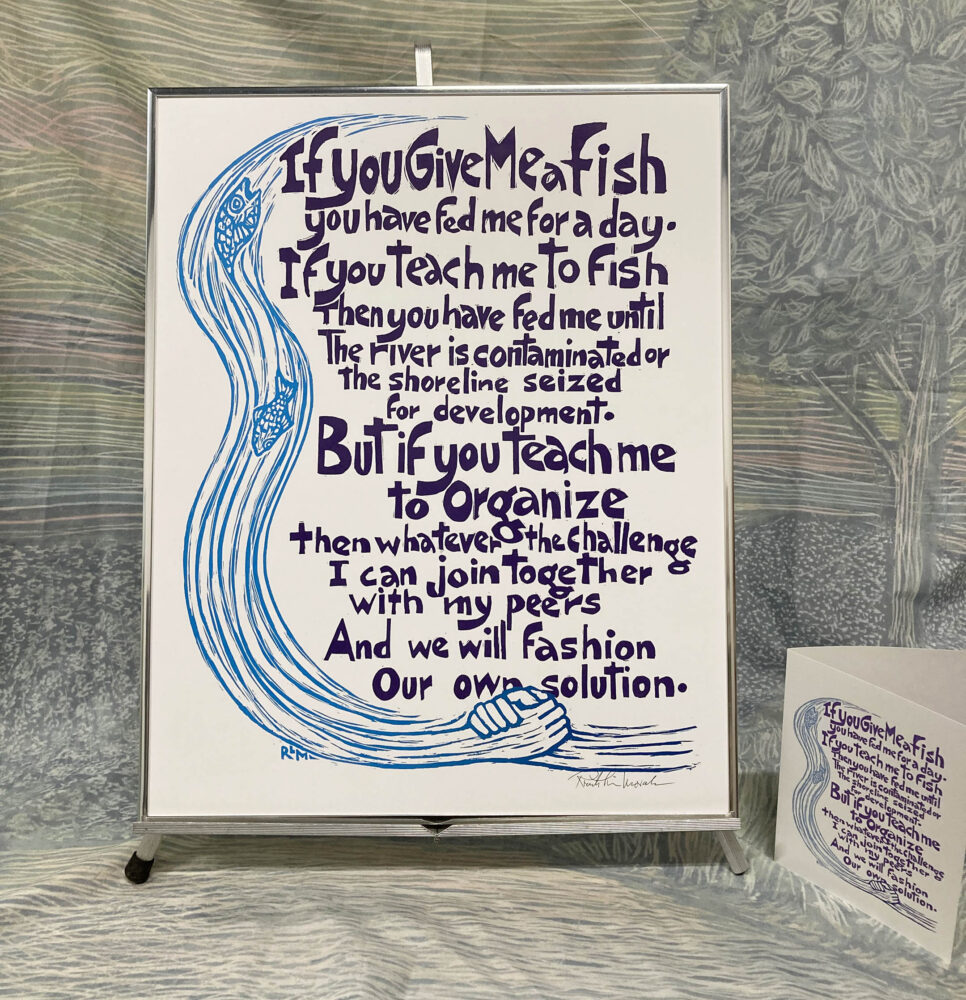 If you Give Me a Fish
you have fed me for a day.
If you Teach me To Fish
Then you have Fed me until
The river is contaminated or
The shoreline seized
for development.
But if you Teach me
to Organize
then whatever the challenge
I can join together
with my peers
And we will Fashion
Our own solution.
RLM
If you Give Me a Fish
you have fed me for a day.
If you Teach me To Fish
Then you have Fed me until
The river is contaminated or
The shoreline seized
for development.
But if you Teach me
to Organize
then whatever the challenge
I can join together
with my peers
And we will Fashion
Our own solution.